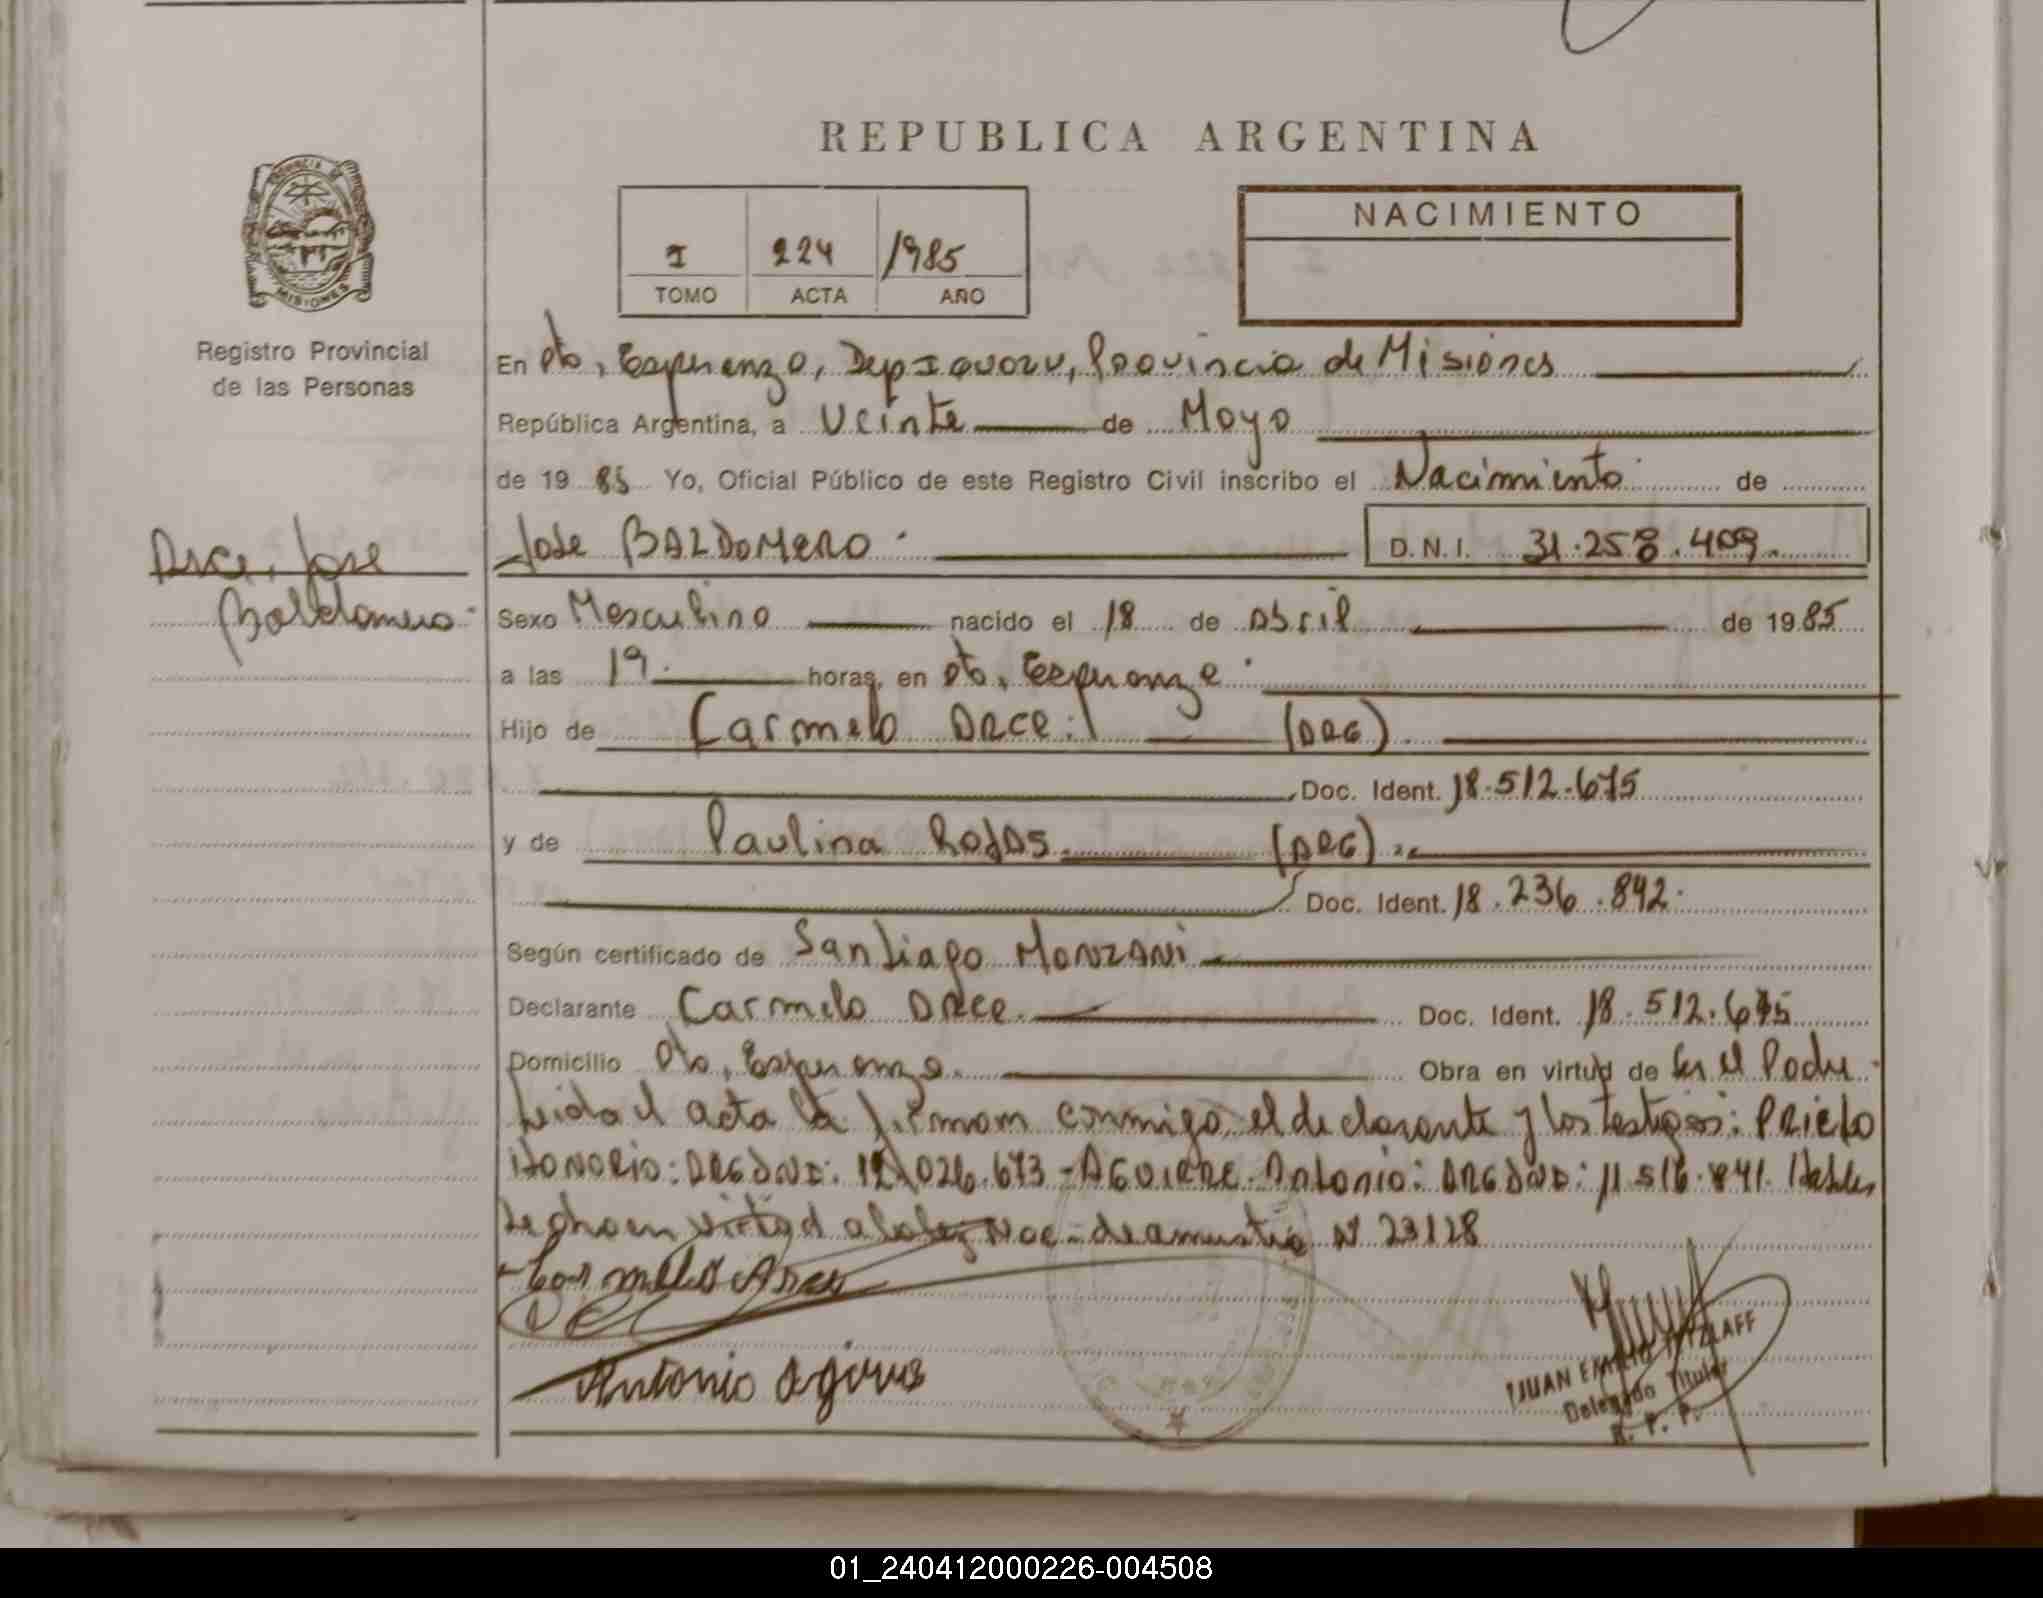 REPUBLICA ARGENTINA
PROVINCIA
MISIONES
Registro Provincial
de las Personas
I 224 1985
TOMO ACTA AÑO
NACIMIENTO
En Pto, Esperanza, Dep Iguazu, Provincia de Misiones
República Argentina, a Veinte de Mayo
de 19 85 Yo, Oficial Público de este Registro Civil inscribo el Nacimiento de
Arce, Jose
Baldomero
Jose BALDOMERO D.N.I. 31.258.409.
Sexo Masculino nacido el 18 de Abril de 1985
a las 19. horas, en Pto, Esperanza
Hijo de Carmelo ARCE. (ARG)
Doc. Ident. 18.512.675
y de Paulina Rojas. (ARG)
Doc. Ident. 18.236.842.
Según certificado de Santiago Manzani
Declarante Carmelo Arce. Doc. Ident. 18.512.675
Domicilio Pto, Esperanza. Obra en virtud de
Leida el acta la firman conmigo, el declarante y los testigos: Prieto
Honorio: ARG DNI: 12.026.673 - AGUIRRE. Antonio: ARG DNI: 11.516.841.
de amnistia Nº 23128
Carmelo Arce
Antonio Agirre
JUAN EMILIO TITZLAFF
Delegado Titular
R. P. P.
01_240412000226-004508